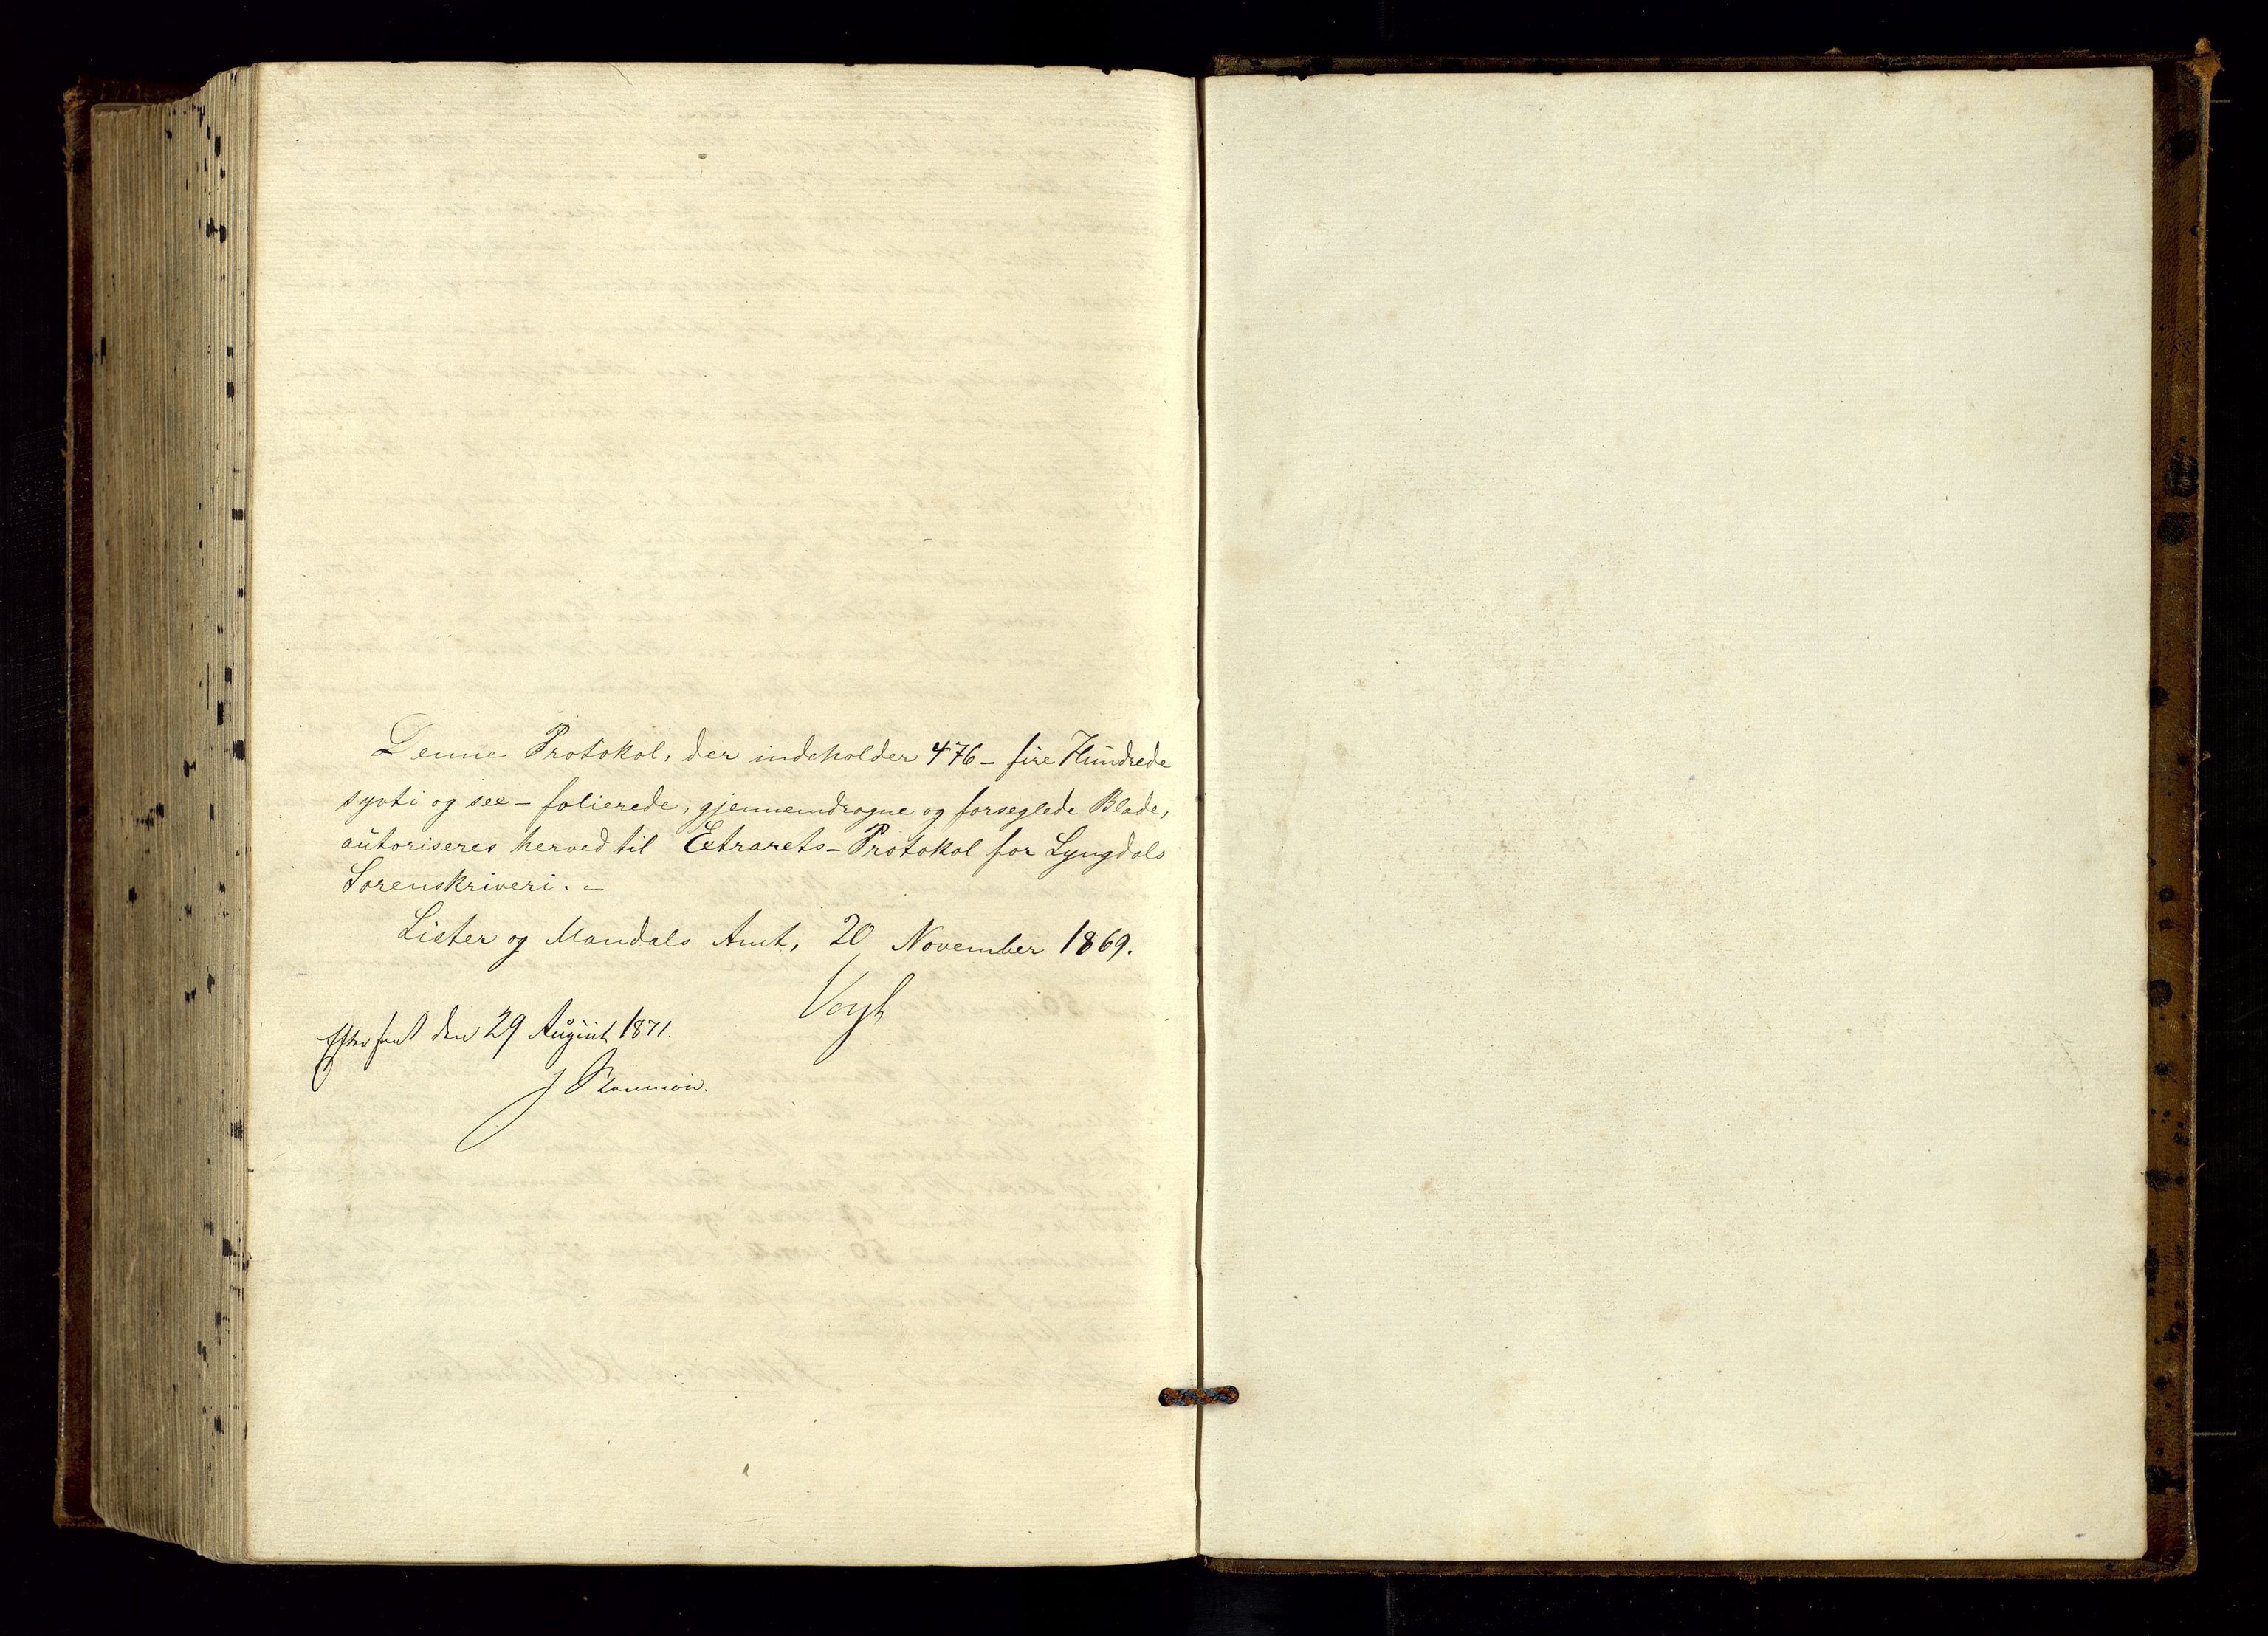 Denne Protokol, der indeholder 476 – fire Hundrede
syvti og sex – folierede, gjennemdragne og forseglede Blade,
autoriseres herved til Extrarets-Protokol for Lyngdals
Sorenskriveri. –
Lister og Mandals Amt, 20 November 1869.
Vogt
Efterseet den 29 August 1871.
J